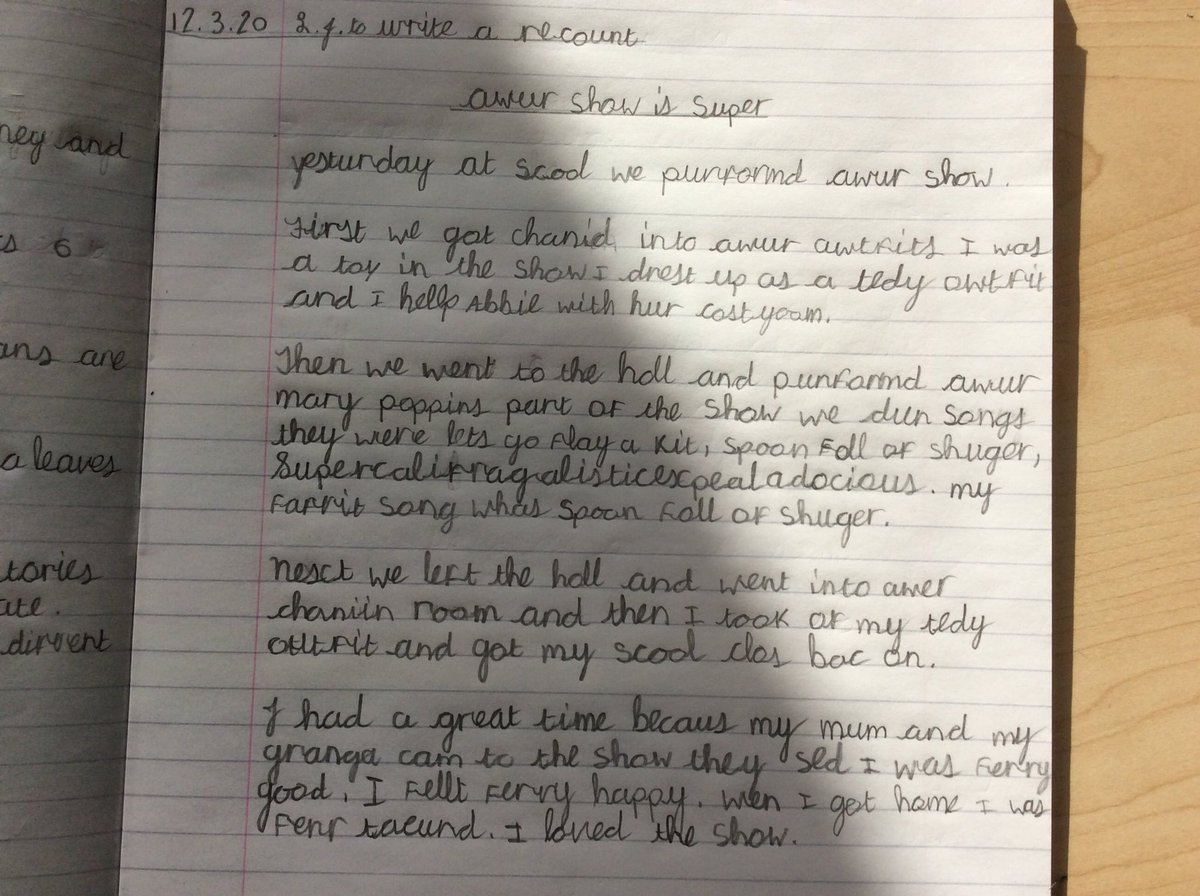 ney and
s 6
ans are
a leaves
tories
ate.
dirvent
12.3.20 L.f.to write a recount
awur show is super
yesturday at scool we purformd awur show.
First we got chanid into awur awtfits I was
a toy in the show I drest up as a tedy owtfit
and I hellp Abbie with hur costyoam.
Then we went to the holl and purformd awur
mary poppins part of the show we dun songs
they were lets go flay a kit, spoon foll of shuger,
Supercalifragalisticexpealadocious. my
farrit song whas spoon foll of shuger.
nesct we left the holl and went into awer
chaniin room and then I took of my tedy
outfit and got my scool clos bac on.
I had a great time becaus my mum and my
granga cam to the show they sed I was ferry
good. I fellt ferry happy. wen I got home I was
ferr taeund. I loved the show.